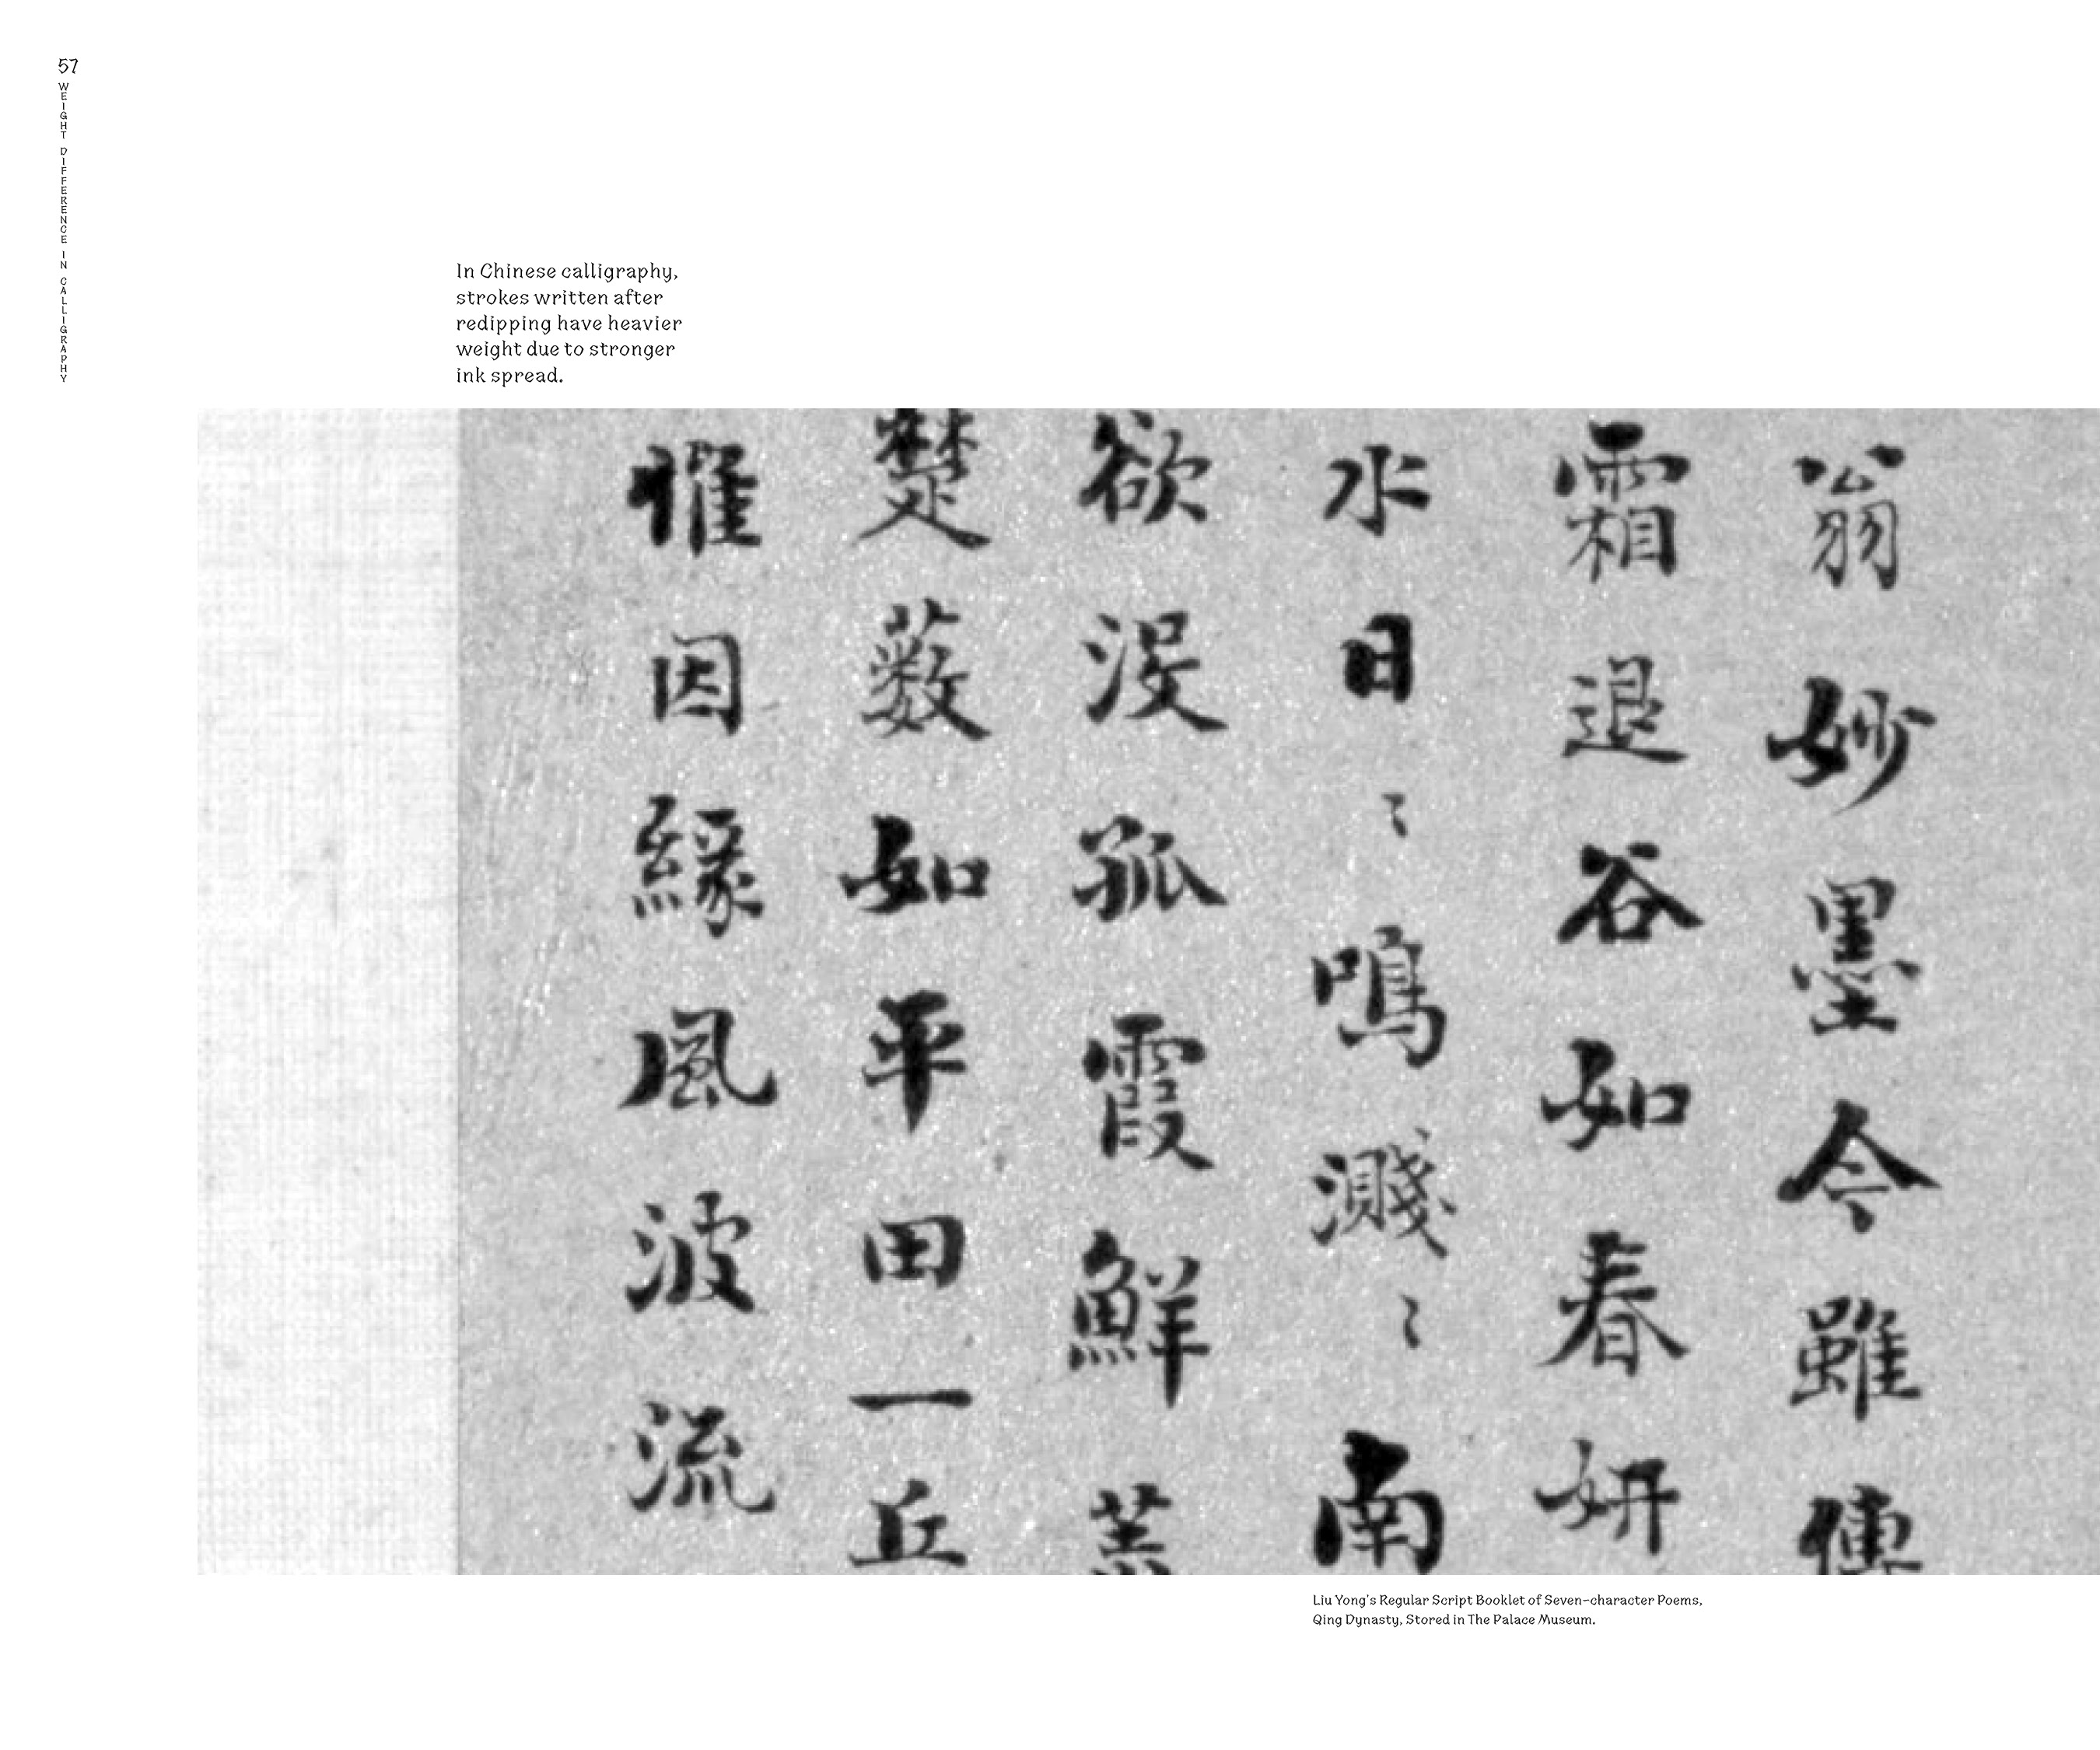 57
WEIGHT DIFFERENCE IN CALLIGRAPHY
In Chinese calligraphy,
strokes written after
redipping have heavier
weight due to stronger
ink spread.
翁妙墨今雖傳
霜退谷如春妍
水日〻鳴濺〻南
欲沒孤霞鮮
楚薮如平田一丘
惟因緣風波流
Liu Yong's Regular Script Booklet of Seven-character Poems,
Qing Dynasty, Stored in The Palace Museum.